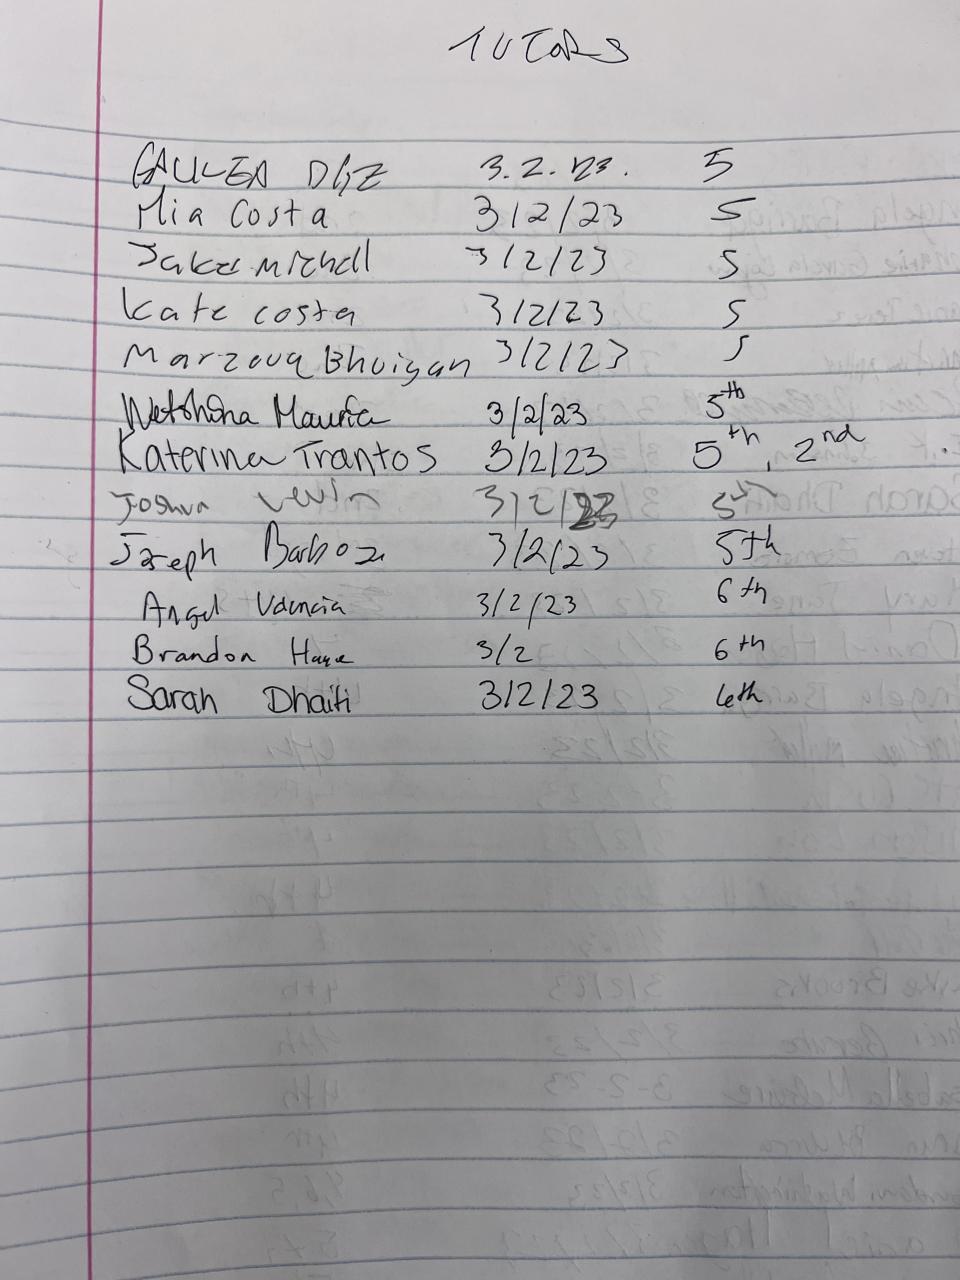 TUTORS
DIAZ 3.2.23. 5
Mia Costa 3/2/23 5
Jake Mitchell 3/2/23 5
Kate costa 3/2/23 5
Marzouq Bhuiyan 3/2/23 5
3/2/23 5th
Katerina Trantos 3/2/23 5th, 2nd
Joshua Levin 3/2/23 5th
Joseph Barboza 3/2/23 5th
Angel Valencia 3/2/23 6th
Brandon 3/2 6th
Sarah Dhaiti 3/2/23 6th